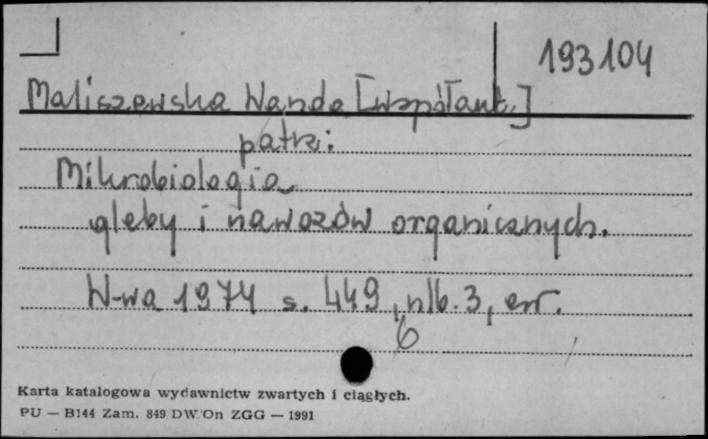 193104
Maliszewska Wanda [współaut.]
patrz:
Mikrobiologia
gleby i nawozów organicznych.
W-wa 1974 s. 449, nlb. 3, err.
6
Karta katalogowa wydawnictw zwartych i ciągłych.
PU — B144 Zam. 849 DW.On ZGG — 1991